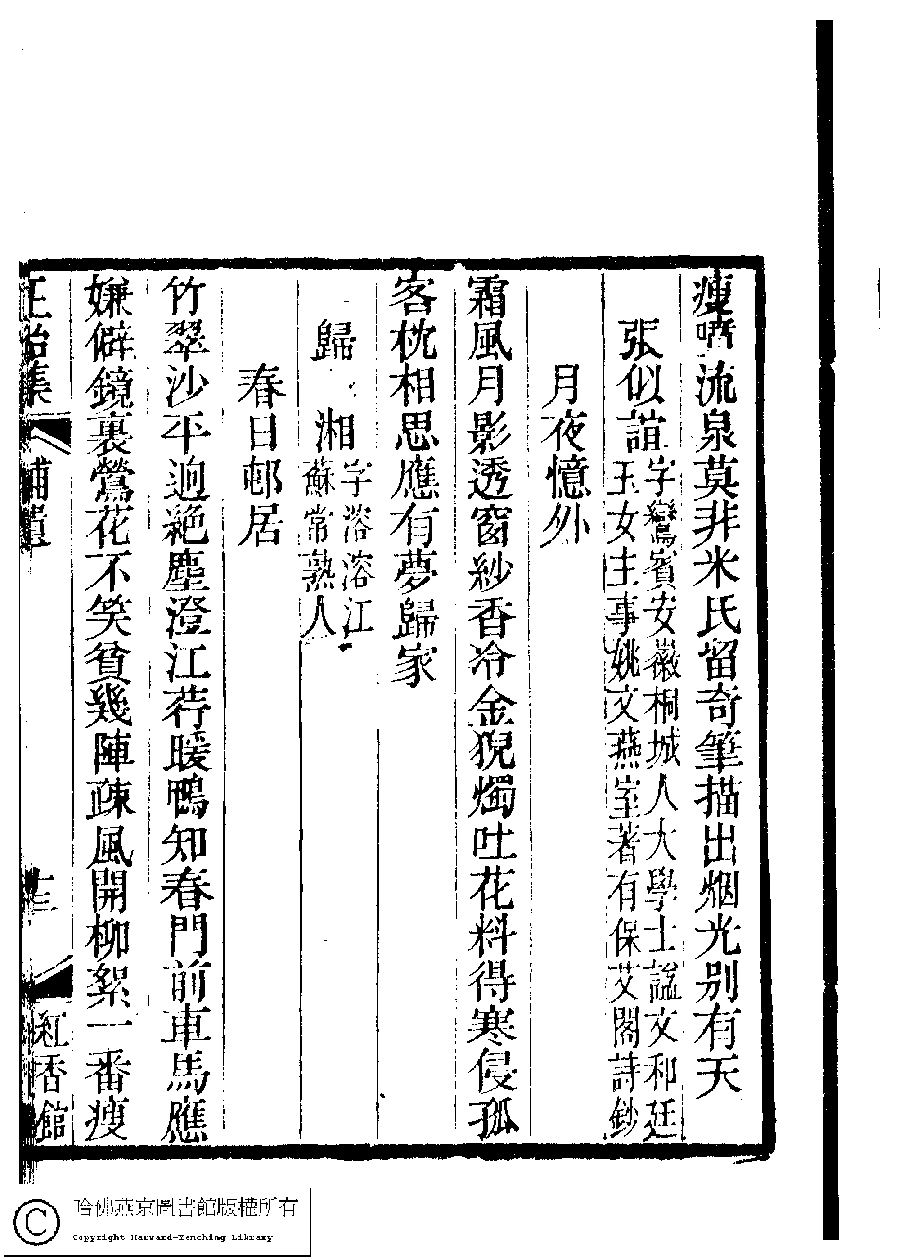 瘦嘈流泉莫非米氏留奇筆描出烟光別有天
張似誼字鸞賓安徽桐城人大學士諡文和廷
玉女主事姚文燕室著有保艾閣詩鈔
月夜憶外
霜風月影透窗紗香冷金猊燭吐花料得寒侵孤
客枕相思應有夢歸家
歸湘字溶溶江
蘇常熟人
春日邨居
竹翠沙平迥絕塵澄江荇暖鴨知春門前車馬應
嫌僻鏡裏鶯花不笑貧幾陣疎風開柳絮一番瘦
正始集 補遺 十三 紅香館
哈佛燕京圖書館版權所有
Copyright Harvard-Yenching Library